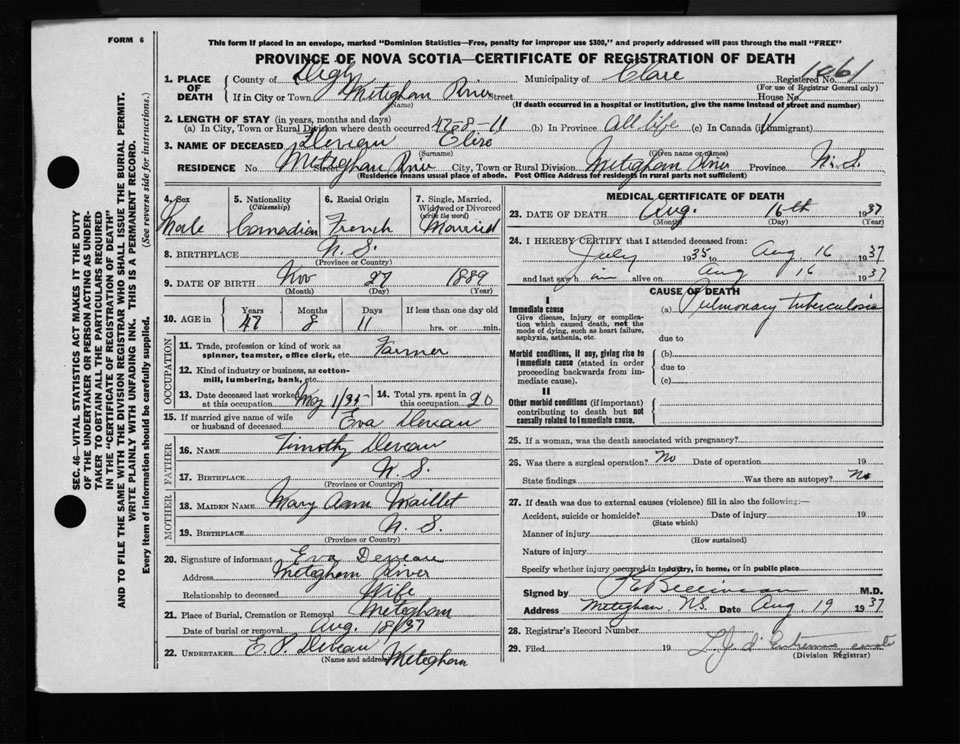 FORM 6
This form if placed in an envelope, marked "Dominion Statistics—Free, penalty for improper use $300," and properly addressed will pass through the mail "FREE"
PROVINCE OF NOVA SCOTIA—CERTIFICATE OF REGISTRATION OF DEATH
1. PLACE OF DEATH County of Digby Municipality of Clare Registered No. 1061
(For use of Registrar General only)
If in City or Town Meteghan River Street House No
(Name) (If death occurred in a hospital or institution, give the name instead of street and number)
2. LENGTH OF STAY (in years, months and days)
(a) In City, Town or Rural Division where death occurred 47-8-11 (b) In Province all life (c) In Canada (if immigrant)
3. NAME OF DECEASED Deveau Elize
(Surname) (Given name or names)
RESIDENCE No. Meteghan River Street City, Town or Rural Division Meteghan River Province N.S.
(Residence means usual place of abode. Post Office Address for residents in rural parts not sufficient)
4. Sex Male
5. Nationality (Citizenship) Canadian
6. Racial Origin French
7. Single, Married, Widowed or Divorced (write the word) Married
8. BIRTHPLACE N.S.
(Province or Country)
9. DATE OF BIRTH Nov 27 1889
(Month) (Day) (Year)
10. AGE in Years 47 Months 8 Days 11 If less than one day old hrs. or min.
OCCUPATION
11. Trade, profession or kind of work as spinner, teamster, office clerk, etc. Farmer
12. Kind of industry or business, as cotton-mill, lumbering, bank, etc.
13. Date deceased last worked at this occupation May 1/35 14. Total yrs. spent in this occupation 20
15. If married give name of wife or husband of deceased Eva Deveau
FATHER
16. NAME Timothy Deveau
17. BIRTHPLACE N.S.
(Province or Country)
MOTHER
18. MAIDEN NAME Mary Ann Maillet
19. BIRTHPLACE N.S.
(Province or Country)
20. Signature of informant Eva Deveau
Address Meteghan River
Relationship to deceased Wife
21. Place of Burial, Cremation or Removal Meteghan
Date of burial or removal Aug. 18/37
22. UNDERTAKER E. P. Deveau Meteghan
(Name and address)
MEDICAL CERTIFICATE OF DEATH
23. DATE OF DEATH Aug. 16th 1937
(Month) (Day) (Year)
24. I HEREBY CERTIFY that I attended deceased from:
July 1935 to Aug 16 1937
and last saw him alive on Aug 16 1937
CAUSE OF DEATH
I
Immediate cause
Give disease, injury or complication which caused death, not the mode of dying, such as heart failure, asphyxia, asthenia, etc.
(a) Pulmonary tuberculosis
due to
Morbid conditions, if any, giving rise to immediate cause (stated in order proceeding backwards from immediate cause).
(b)
due to
(c)
II
Other morbid conditions (if important) contributing to death but not causally related to immediate cause.
25. If a woman, was the death associated with pregnancy?
26. Was there a surgical operation? No Date of operation 19
State findings Was there an autopsy? No
27. If death was due to external causes (violence) fill in also the following:—
Accident, suicide or homicide? Date of injury 19
(State which)
Manner of injury
(How sustained)
Nature of injury
Specify whether injury occurred in industry, in home, or in public place
Signed by Belliveau M.D.
Address Meteghan, N.S. Date Aug. 19 1937
28. Registrar's Record Number
29. Filed 19
(Division Registrar)
SEC. 46—VITAL STATISTICS ACT MAKES IT THE DUTY
OF THE UNDERTAKER OR PERSON ACTING AS UNDERTAKER TO OBTAIN ALL THE PARTICULARS REQUIRED
IN THE "CERTIFICATE OF REGISTRATION OF DEATH"
AND TO FILE THE SAME WITH THE DIVISION REGISTRAR WHO SHALL ISSUE THE BURIAL PERMIT.
WRITE PLAINLY WITH UNFADING INK. THIS IS A PERMANENT RECORD.
Every item of information should be carefully supplied. (See reverse side for instructions.)